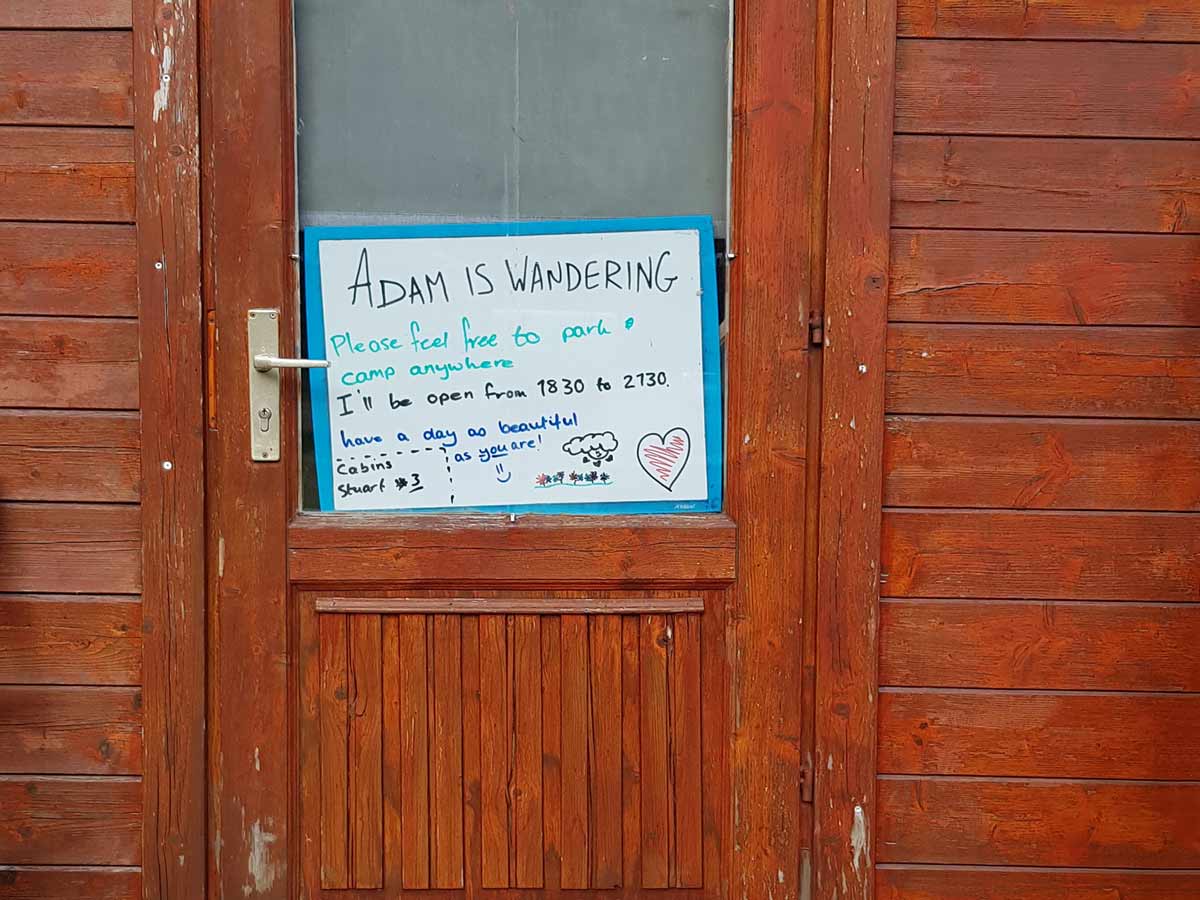 ADAM IS WANDERING
Please feel free to park &
camp anywhere
I'll be open from 1830 to 2130.
have a day as beautiful
as you are!
Cabins
Stuart #3